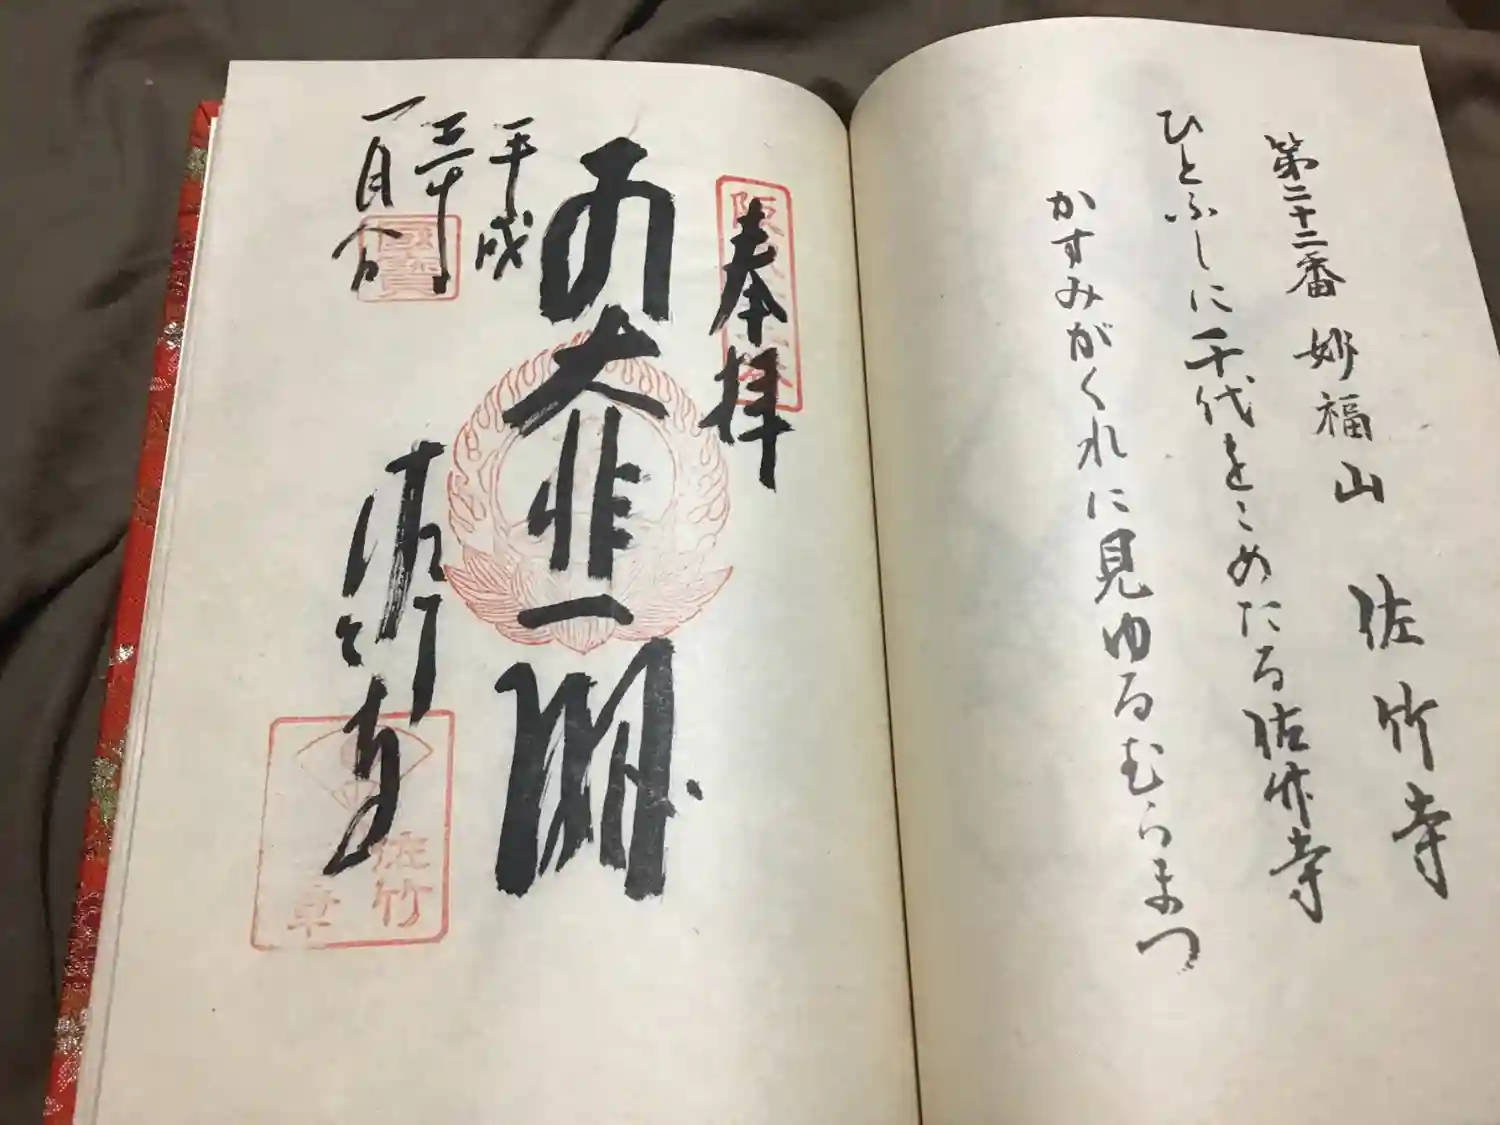 第二十二番 妙福山 佐竹寺
ひとふしに千代をこめたる佐竹寺
かすみがくれに見ゆるむらまつ
奉拝
大悲閣
平成
三十年
一月
佐竹寺
佐竹
章